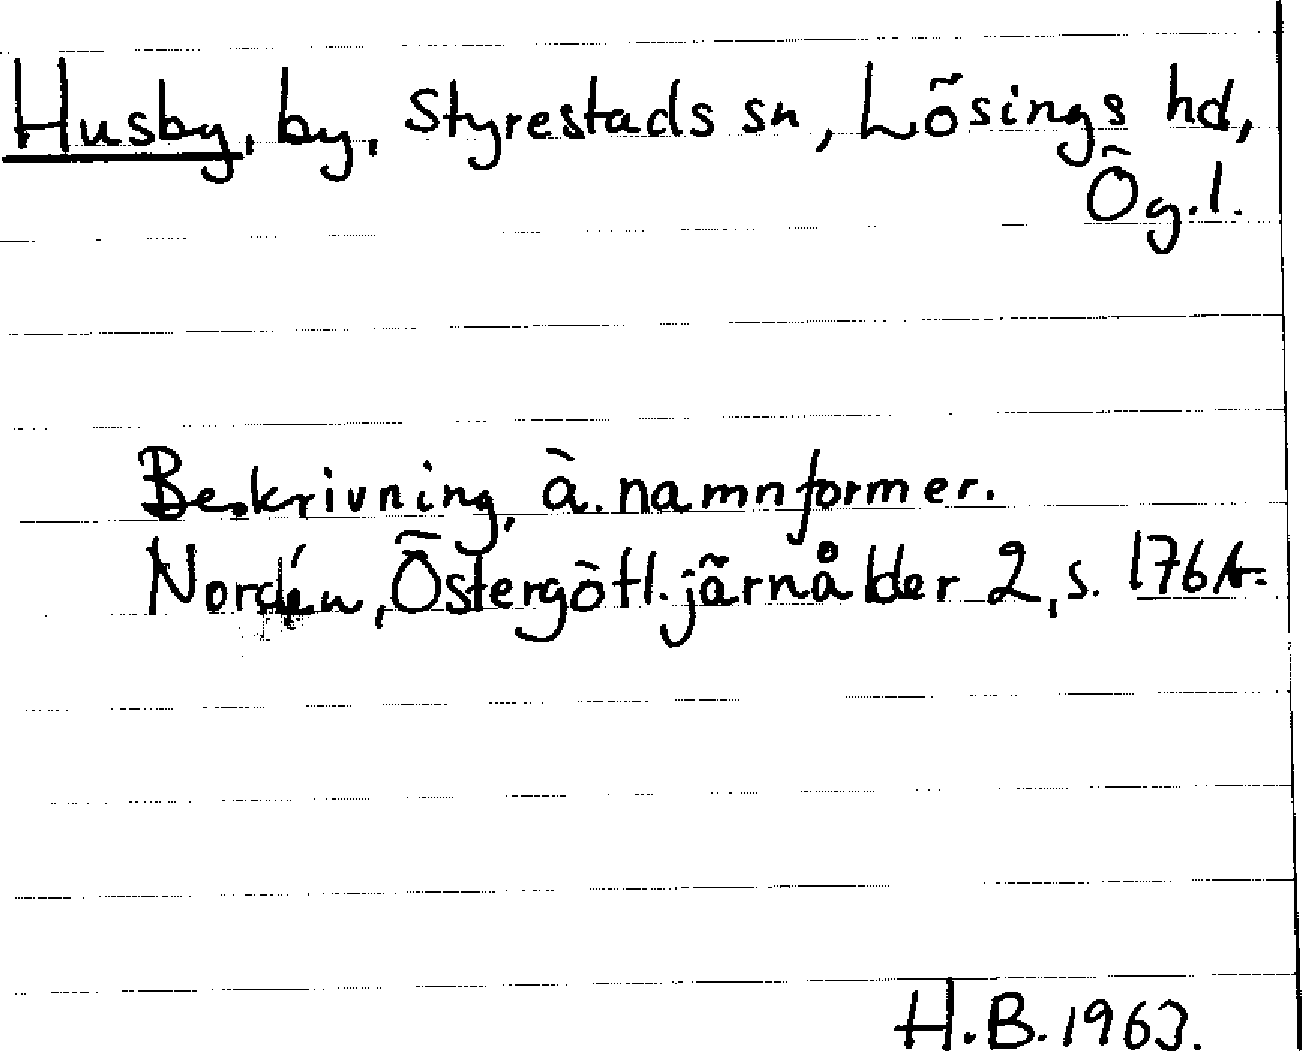 Husby, by, Styrestads sn, Lösings hd,
Ög.l.
Beskrivning, ä. namnformer.
Nordén, Östergötl. järnålder 2, s. 176 ff.
H.B. 1963.